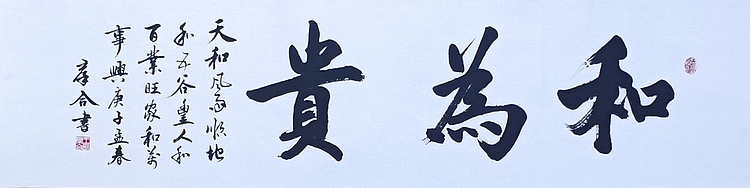 和為貴
天和風雨順地
和五谷豐人和
百業旺家和萬
事興庚子孟春
合書